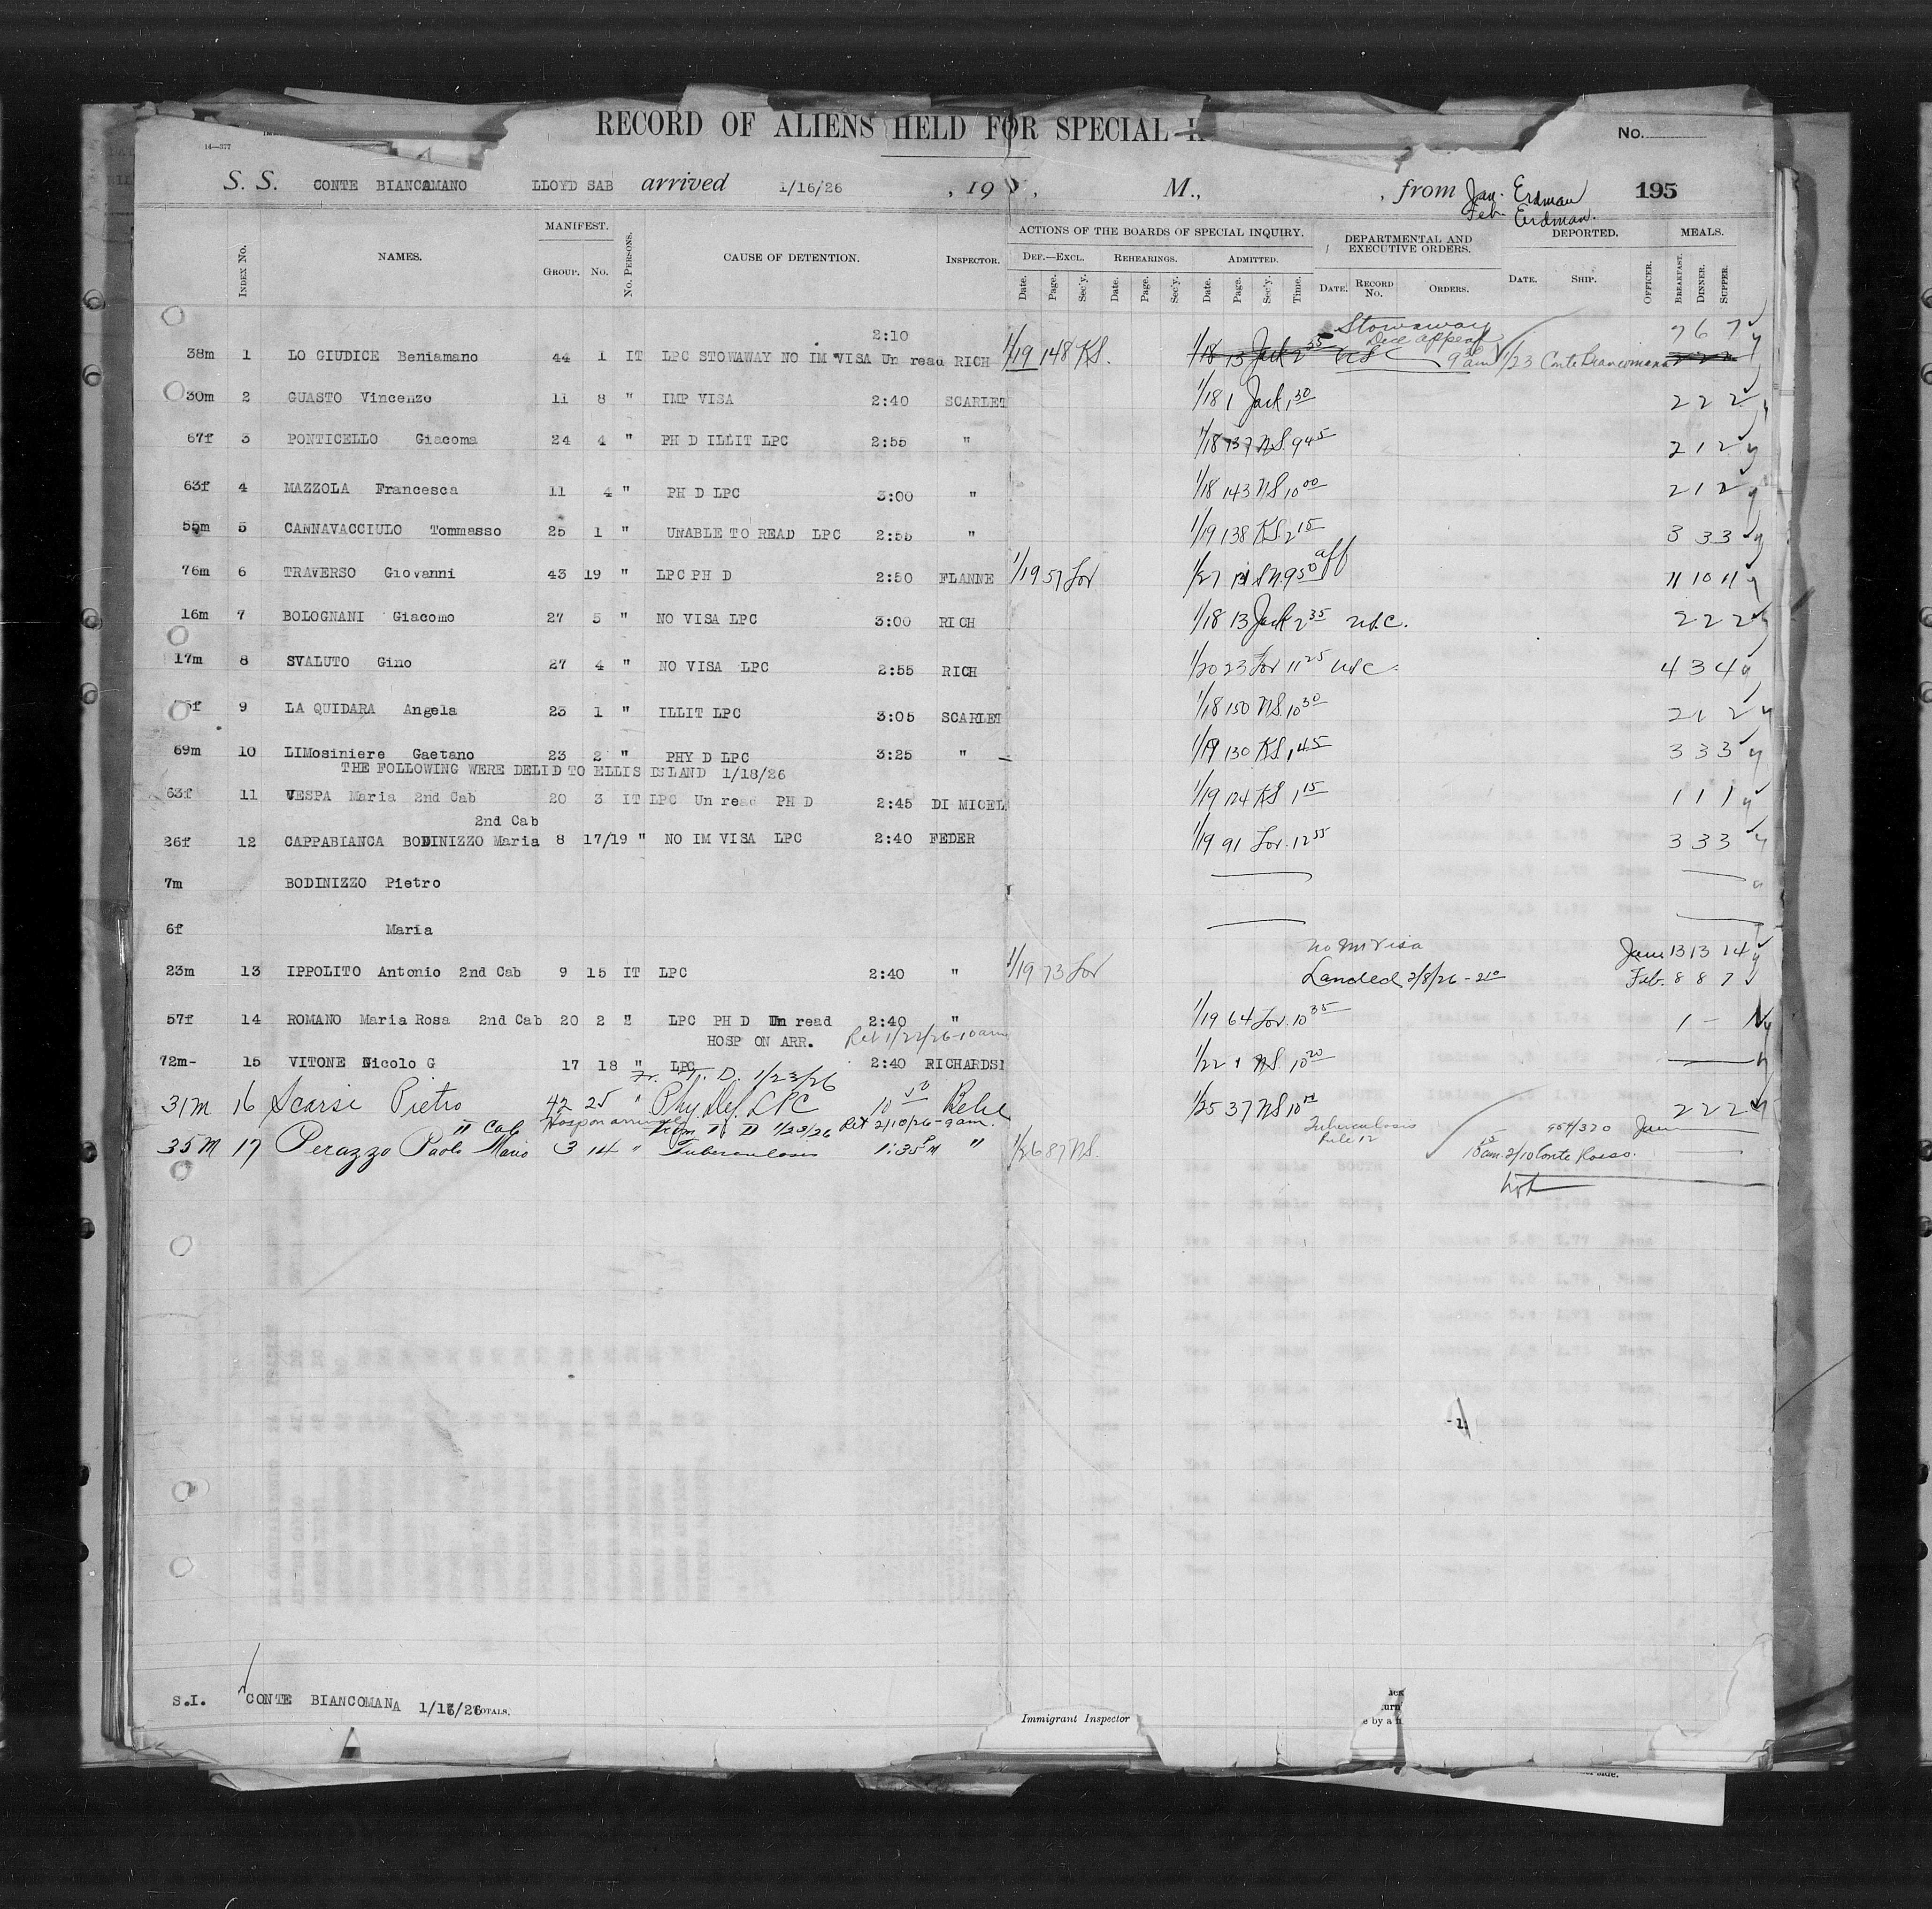 RECORD OF ALIENS HELD FOR SPECIAL
No.
14—377
S. S. CONTE BIANCAMANO LLOYD SAB arrived 1/16/26 , 19 , M., , from Jan. Erdman 195
Feb. Erdman.
INDEX No. NAMES. MANIFEST. GROUP. No. No. PERSONS. CAUSE OF DETENTION. INSPECTOR.
ACTIONS OF THE BOARDS OF SPECIAL INQUIRY. DEPARTMENTAL AND EXECUTIVE ORDERS. DEPORTED. MEALS.
DEF.—EXCL. REHEARINGS. ADMITTED.
Date. Page. Sec'y. Date. Page. Sec'y. Date. Page. Sec'y. Time. DATE. RECORD No. ORDERS. DATE. SHIP. OFFICER. BREAKFAST. DINNER. SUPPER.
2:10 Stowaway 7 6 7
Dec appeal
38m 1 LO GIUDICE Beniamano 44 1 IT LPC STOWAWAY NO IM VISA Un read RICH 1/19 148 KS. 1/18 13 Jack 2 35 USC 9 am 1/23 Conte Biancomano 2 2 2
30m 2 GUASTO Vincenzo 11 8 " IMP VISA 2:40 SCARLET 1/18 1 Jack 1 30 2 2 2
67f 3 PONTICELLO Giacoma 24 4 " PH D ILLIT LPC 2:55 " 1/18 137 NS. 9 45 2 1 2
63f 4 MAZZOLA Francesca 11 4 " PH D LPC 3:00 " 1/18 143 NS 10 00 2 1 2
55m 5 CANNAVACCIULO Tommasso 25 1 " UNABLE TO READ LPC 2:55 " 1/19 138 KS. 2 15 3 3 3
76m 6 TRAVERSO Giovanni 43 19 " LPC PH D 2:50 FLANNE 1/19 57 Lor 1/27 SN. 9 50 aff 11 10 11
16m 7 BOLOGNANI Giacomo 27 5 " NO VISA LPC 3:00 RICH 1/18 13 Jack 2 35 USC. 2 2 2
17m 8 SVALUTO Gino 27 4 " NO VISA LPC 2:55 RICH 1/20 23 Lor 11 25 USC 4 3 4
9 LA QUIDARA Angela 23 1 " ILLIT LPC 3:05 SCARLET 1/18 150 NS. 10 30 2 1 2
69m 10 LIMosiniere Gaetano 23 2 " PHY D LPC 3:25 " 1/19 130 KS 1 45 3 3 3
THE FOLLOWING WERE DELI D TO ELLIS ISLAND 1/18/26
63f 11 VESPA Maria 2nd Cab 20 3 IT LPC Un read PH D 2:45 DI MICEL 1/19 124 KS 1 15 1 1 1
2nd Cab
26f 12 CAPPABIANCA BODINIZZO Maria 8 17/19 " NO IM VISA LPC 2:40 FEDER 1/19 91 Lor. 12 55 3 3 3
7m BODINIZZO Pietro
6f Maria
no Im Visa Jan. 13 13 14
23m 13 IPPOLITO Antonio 2nd Cab 9 15 IT LPC 2:40 " 1/19 73 Lor Landed 2/8/26 - 2 10 Feb. 8 8 7
57f 14 ROMANO Maria Rosa 2nd Cab 20 2 " LPC PH D Un read 2:40 " 1/19 64 Lor. 10 35 1 —
HOSP ON ARR. Ret 1/22/26-10am
72m- 15 VITONE Nicolo G 17 18 " LPC 2:40 RICHARDS 1/22 1 NS. 10 20
Fr. T. D. 1/23/26
31m 16 Scarsi Pietro 42 25 " Phy. Def. LPC 10 10 1/25 37 NS 10 2 2 2
II Cab Hosp on arrival from T. D 1/23/26 Ret 2/10/26-9am. Tuberculosis Rule 12 954/320 Jan
35m 17 Perazzo Paolo Mario 3 14 " Tuberculosis 1:35 PM " 1/26 87 NS. 2/10 Conte Rosso.
- 1.
S.I. CONTE BIANCOMANA 1/16/26 TOTALS.
Immigrant Inspector
e by a
side.